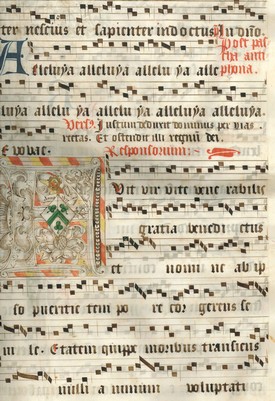 ter nescius et sapienter indoctus In dño.
Post pas
cha anti
phona.
Alleluÿa alleluÿa alleluÿa alle
luÿa alleluÿa alleluÿa alleluÿa alleluÿa.
Vers. Justum deduxit dominus per vias
rectas. Et ostendit illi regnū dei.
Evovae. Responsorium:
Fuit vir vite vene rabilis
gratia bened ictus
et nomi ne ab ip
so pueritie tem po re cor gerens se
ni le. Etatem quipe moribus transiens
nulli a nimum voluptati